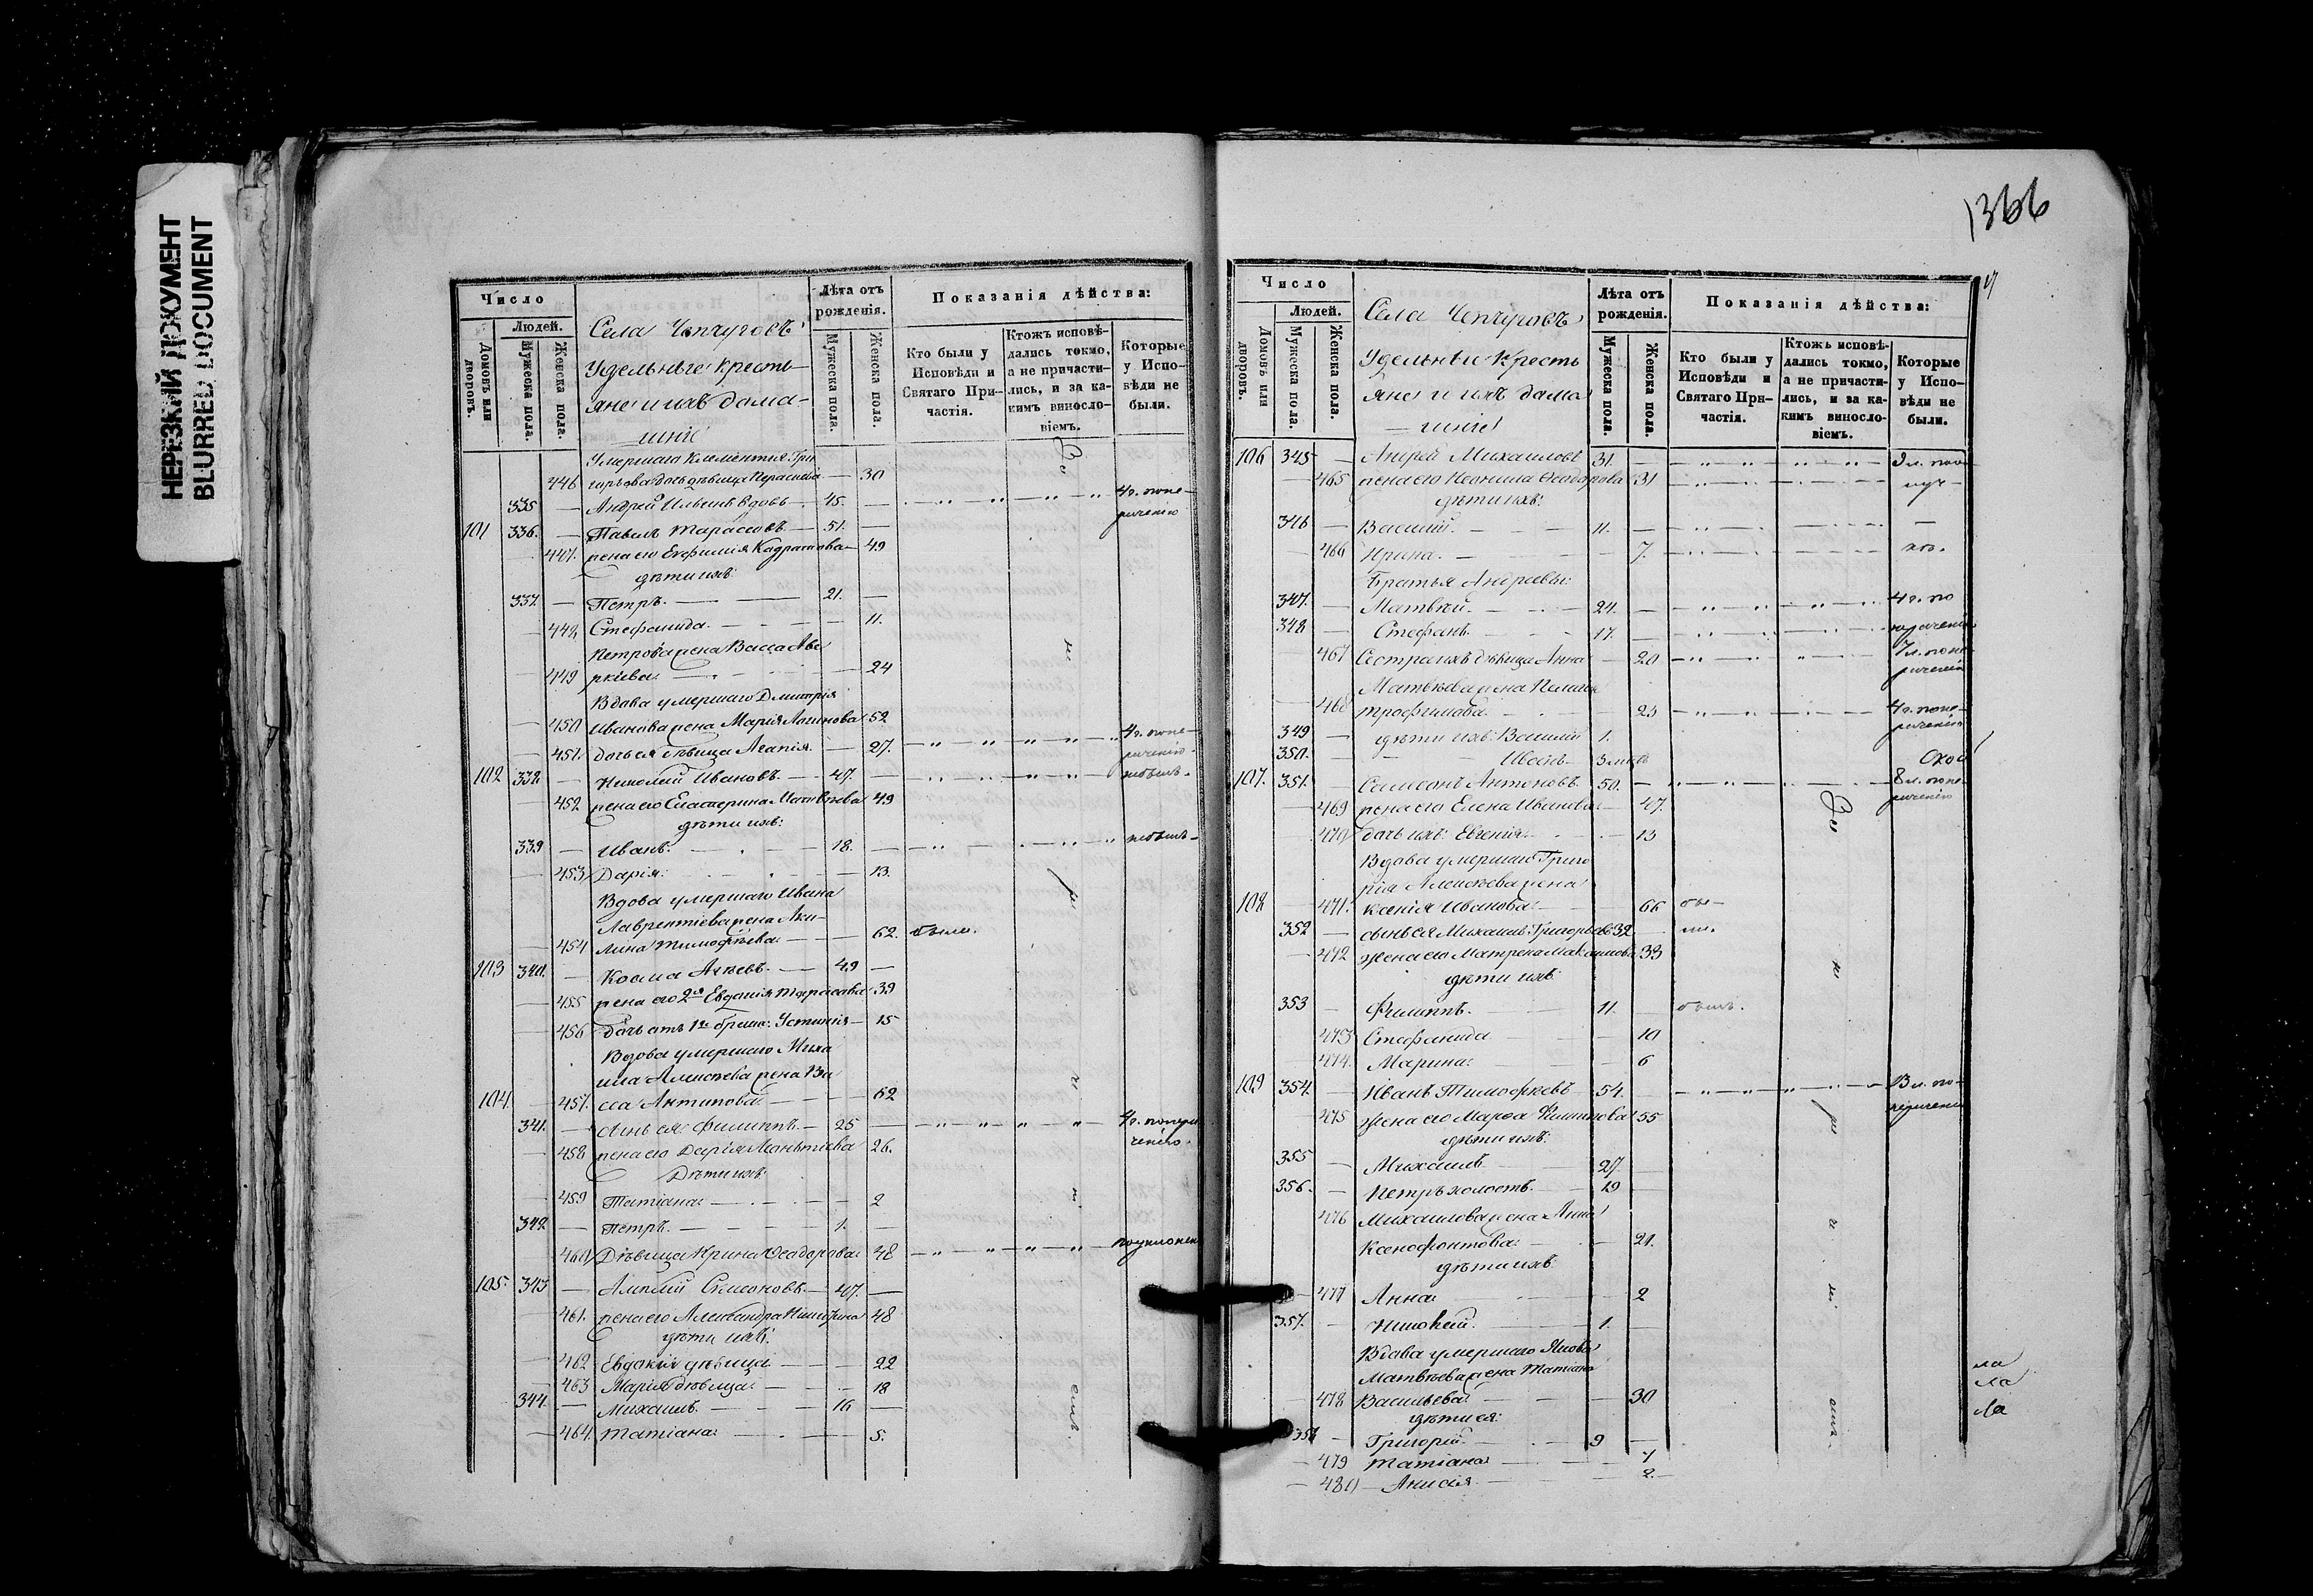 НЕРЕЗКИЙ ДОКУМЕНТ
BLURRED DOCUMENT
1366
Число
Людей.
Домовъ или дворовъ.
Мужеска пола.
Женска пола.
Села Чепчуговъ
Удельные Кресть-
яне и ихъ дома-
шніе
Лѣта отъ рожденія.
Мужеска пола.
Женска пола.
Показанія дѣйства:
Кто были у Исповѣди и Святаго Причастія.
Ктожъ исповѣдались токмо, а не причастились, и за какимъ винословіемъ.
Которые у Исповѣди не были.
Умершаго Клементія Гри
446 дочь дѣвица 30
335 — Андрей Ильинъ вдовъ — 45. 4 г. попе-
речению
101 336. — Павелъ Тарасовъ — 51. —
447. жена его Евфимія 49
дѣти ихъ:
337. — Петръ. — 21. —
448 Стефанида. — 11.
Петрова жена Васса Аве
449 ркіева. — 24
Вдова умершаго Дмитрія
450 Иванова жена Марія Логинова 52
451. дочь ея дѣвица Агапія. — 27. 4 г. попе-
речению.
102 338. — Николай Ивановъ. — 47. — небылъ.
452. жена его Екатерина Матвѣева 49
дѣти ихъ:
339 — Иванъ. — 18. — небылъ
453 Дарія. — 13.
Вдова умершаго Ивана
Лаврентіева жена Аку-
454 лина Тимофѣева. — 62. была.
103 340. — Косма — 49 —
455 жена его 2я Евдокія Тарасова 39
456 дочь отъ 1го брака: Устинія — 15
Вдова умершаго Миха
ила Алексѣева жена Ва
104. 457. сса Антипова. — 62
341. — сынъ ея: Филиппъ. — 25 — 4 г. попере
чению.
458 жена его Дарія Леонтіева 26.
Дѣти ихъ:
459 Татіана: — 2
342. — Петръ. — 1. —
460 Дѣвица Ирина Ѳеодорова: 48
105. 343 — Симоновъ. — 47. —
461. жена его Александра Никитина 48
дѣти ихъ:
462 Евдокія дѣвица — 22
463 Марія дѣвица: — 18
344. — Михаилъ. — 16 —
464. Татіана: — 5.
Число
Людей.
Домовъ или дворовъ.
Мужеска пола.
Женска пола.
Села Чепчуговъ
Удельныи Кресть
яне и ихъ дома
шніе
Лѣта отъ рожденія.
Мужеска пола.
Женска пола.
Показанія дѣйства:
Кто были у Исповѣди и Святаго Причастія.
Ктожъ исповѣдались токмо, а не причастились, и за какимъ винословіемъ.
Которые у Исповѣди не были.
106 345 — Андрей Михаиловъ 31. —
465 жена его Неонила Ѳеодорова 31
дѣти ихъ:
346 — Василій. — 11. —
466 Ирина. — 7.
Братья Андреевы:
347. — Матвѣй. — 24. — 4 г. по
348 — Стефанъ. — 17. — перечению
467 Сестра ихъ дѣвица Анна — 20 7 л. попе
речению
Матвѣева жена Пелагея
468 Трофимова. — 23 4 г. попе-
речению
349 — дѣти ихъ: Василій 1.
350. — Иванъ
107. 351. — Самсонъ Антоновъ. 50. — 8 л. попе-
речению
469 жена его Елена Иванова — 47.
470 дочь ихъ: Евгенія. — 13
Вдова умершаго Григо
рія Алексѣева жена
108 471. Ксенія Иванова: — 66 бы-
352 — сынъ ея Михаилъ Григорьевъ 32 ли.
472 жена его Матрена Максимова 33
дѣти ихъ:
353 — Филиппъ. — 11. былъ.
473 Стефанида — 10
474. Марина: — 6
109 354. — Иванъ Тимофеевъ — 54. 13 л. по-
перечению
475 жена его Марѳа Филиппова 55
дѣти ихъ:
355 — Михаилъ — 27.
356. — Петръ холостъ. — 19
476 Михаилова жена Анна
Ксенофонтова: — 21.
дѣти ихъ:
477 Анна — 2
357. — Николай. — 1.
Вдова умершаго Якова
Матвѣева жена Татіана
478 Васильева — 30
дѣти ея:
358 — Григорій. — 9 —
479 Татіана — 7
480 — Анисія. — 2.
ла
ла
ла